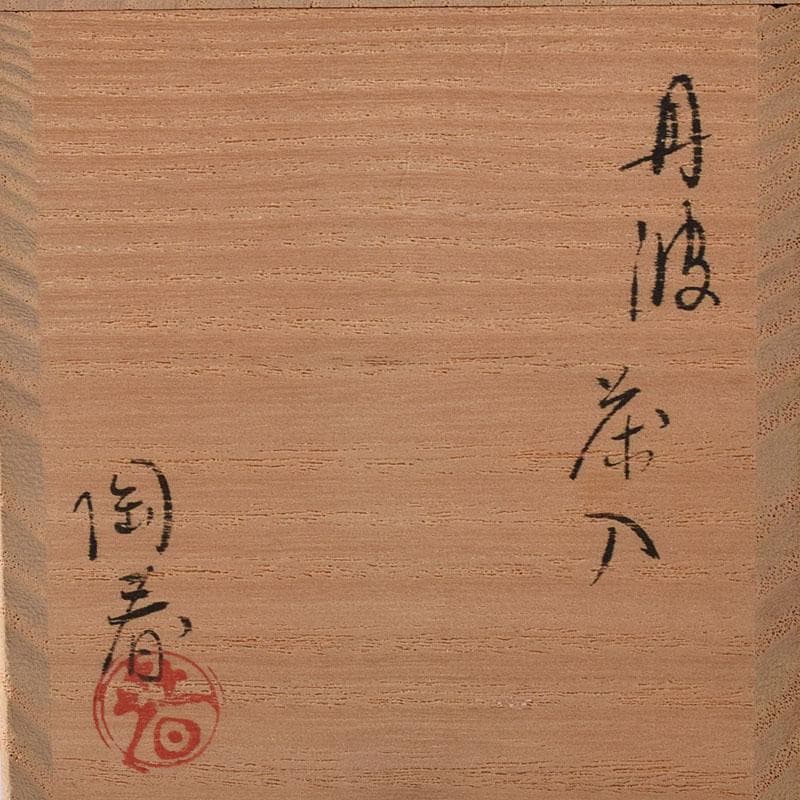 丹波
茶入
陶春